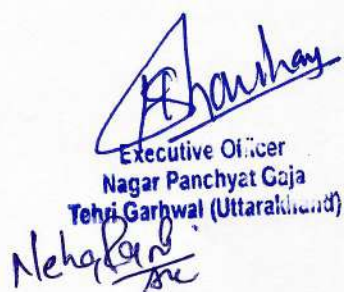 Executive Officer
Nagar Panchyat Gaja
Tehri Garhwal (Uttarakhand)
Neha